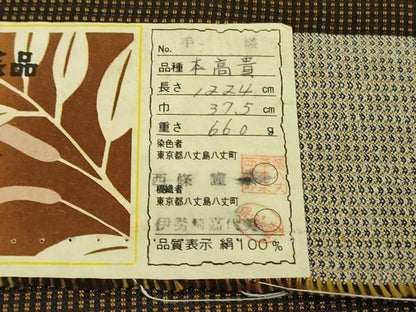 茶品
No. 手織
品種 本高貴
長さ 1224 cm
巾 37.5 cm
重さ 660 g
染色者
東京都八丈島八丈町
西條
機織者
東京都八丈島八丈町
伊勢崎嘉代
品質表示 絹 100%